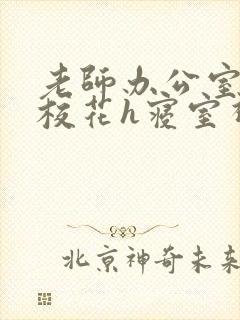 老师办公室
校花h寝室
北京神奇未来